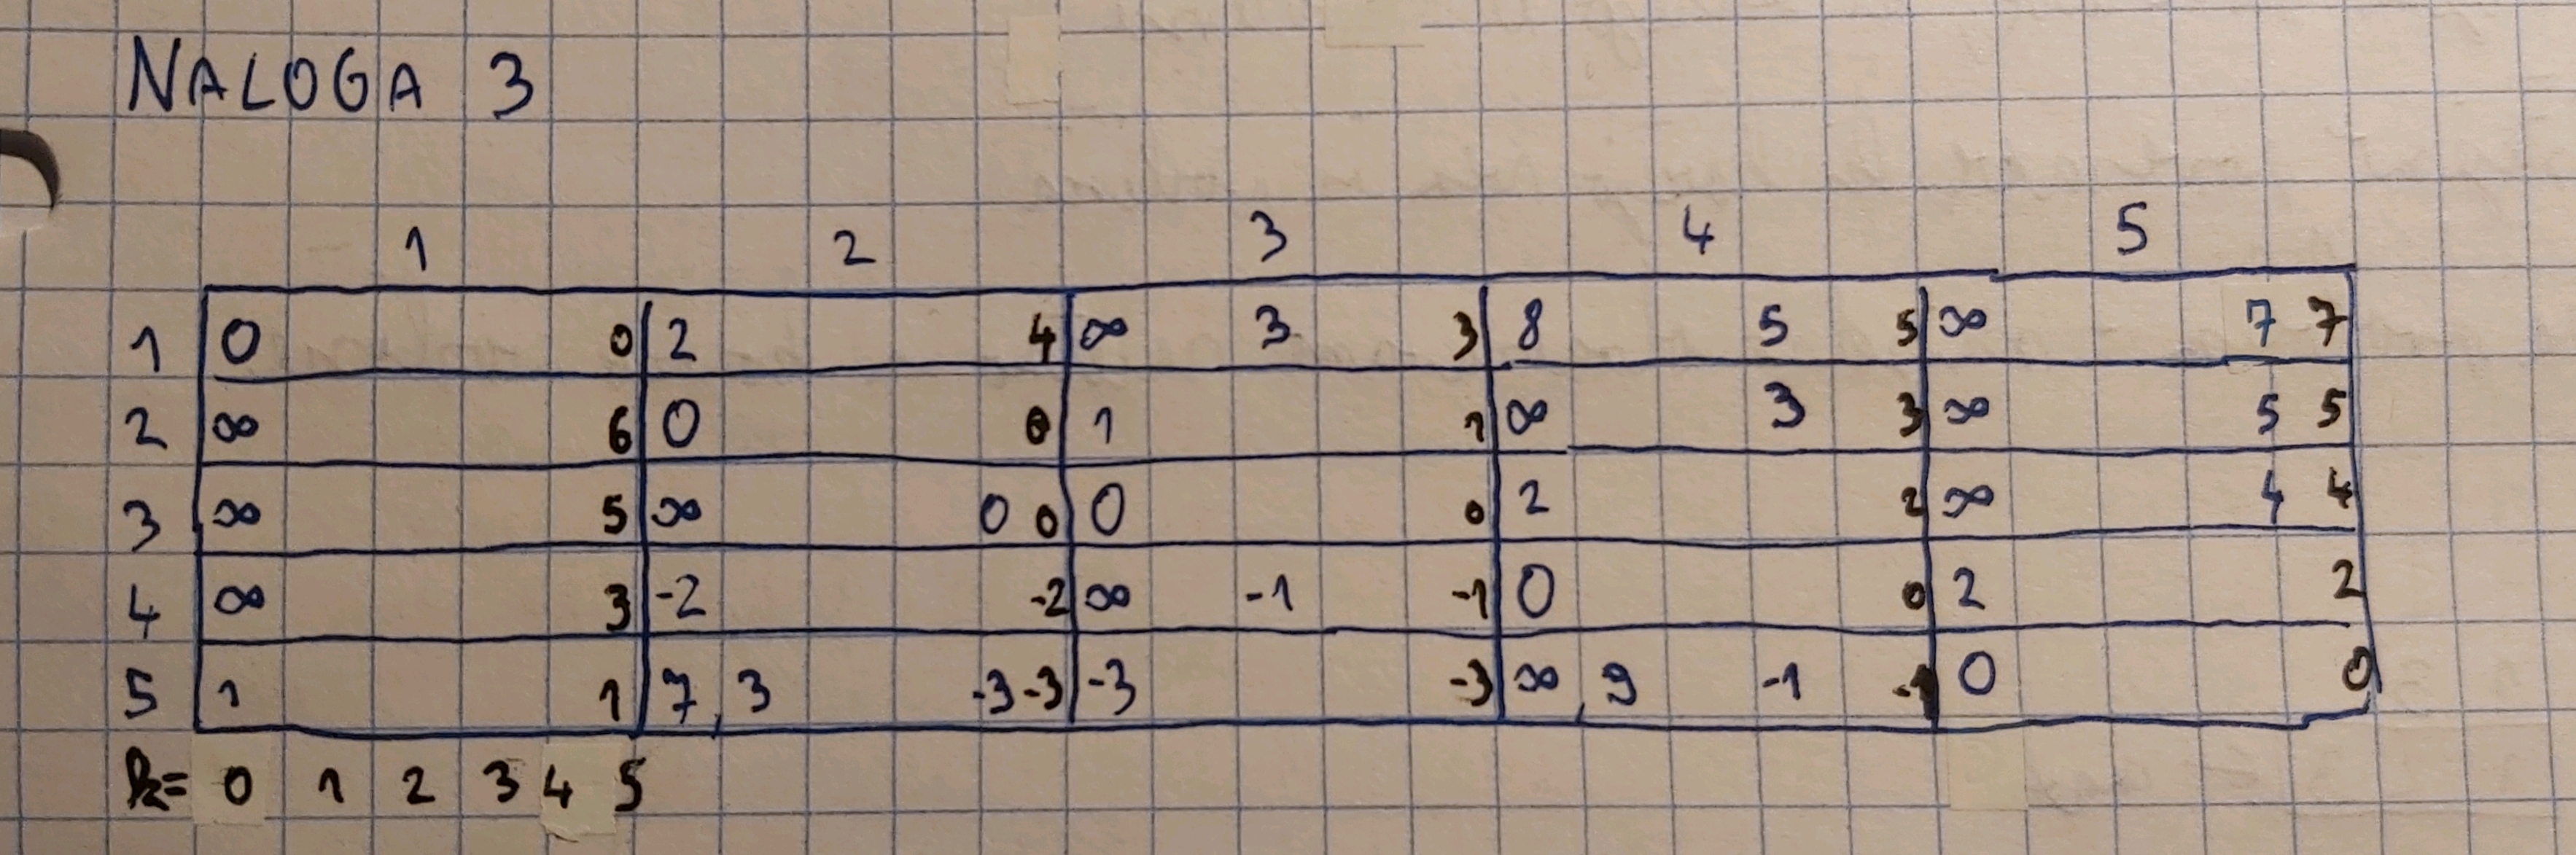 NALOGA 3
1 2 3 4 5
1 0 0 2 4 ∞ 3 3 8 5 5 ∞ 7 7
2 ∞ 6 0 0 1 1 ∞ 3 3 ∞ 5 5
3 ∞ 5 ∞ 0 0 0 0 2 2 ∞ 4 4
4 ∞ 3 -2 -2 ∞ -1 -1 0 0 2 2
5 1 1 7, 3 -3 -3 -3 -3 ∞, 9 -1 -1 0 0
k= 0 1 2 3 4 5